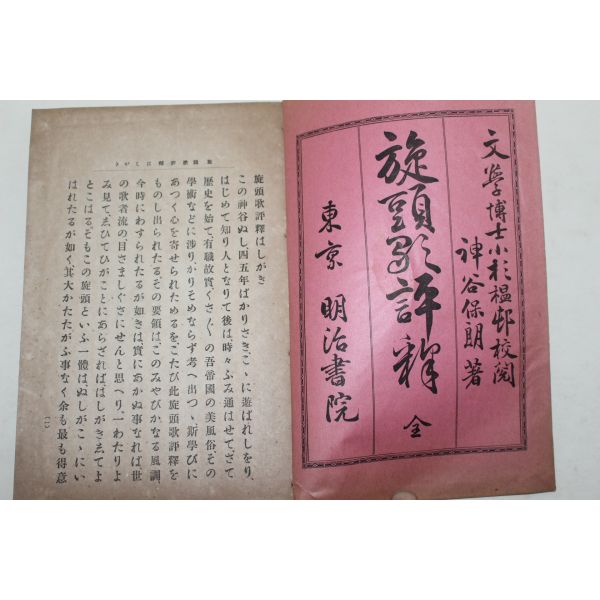 文學博士小杉榲邨校閲
神谷保朗著
旋頭歌評釋 全
東京 明治書院
旋頭歌評釋はしがき
旋頭歌評釋はしがき
この神谷ぬし、四五年ばかりさき、こゝに遊ばれしをり、
はじめて知り人となりて後は、時々ふみ通はせて、さて
歴史を始て、有職故實、くさ〲の吾帝國の美風俗、その
學術などに渉り、かりそめならず考へ出つゝ、斯學びに
あつく心を寄せられためるを、こたび此旋頭歌評釋を
ものし出られたる、その要領は、このみやびかなる風調、
今時にわすられたるが如きは、實にあかぬ事なれば、世
の歌者流の目さましぐさにせんと思へり、一わたりよ
み見て、ゑひてひがことにあらざれば、はしがきゑてよ
とこはる、そもこの旋頭といふ一體は、ぬしがこゝにい
はれたるが如く、其大かたたがふ事なく、余も最も得意
(一)